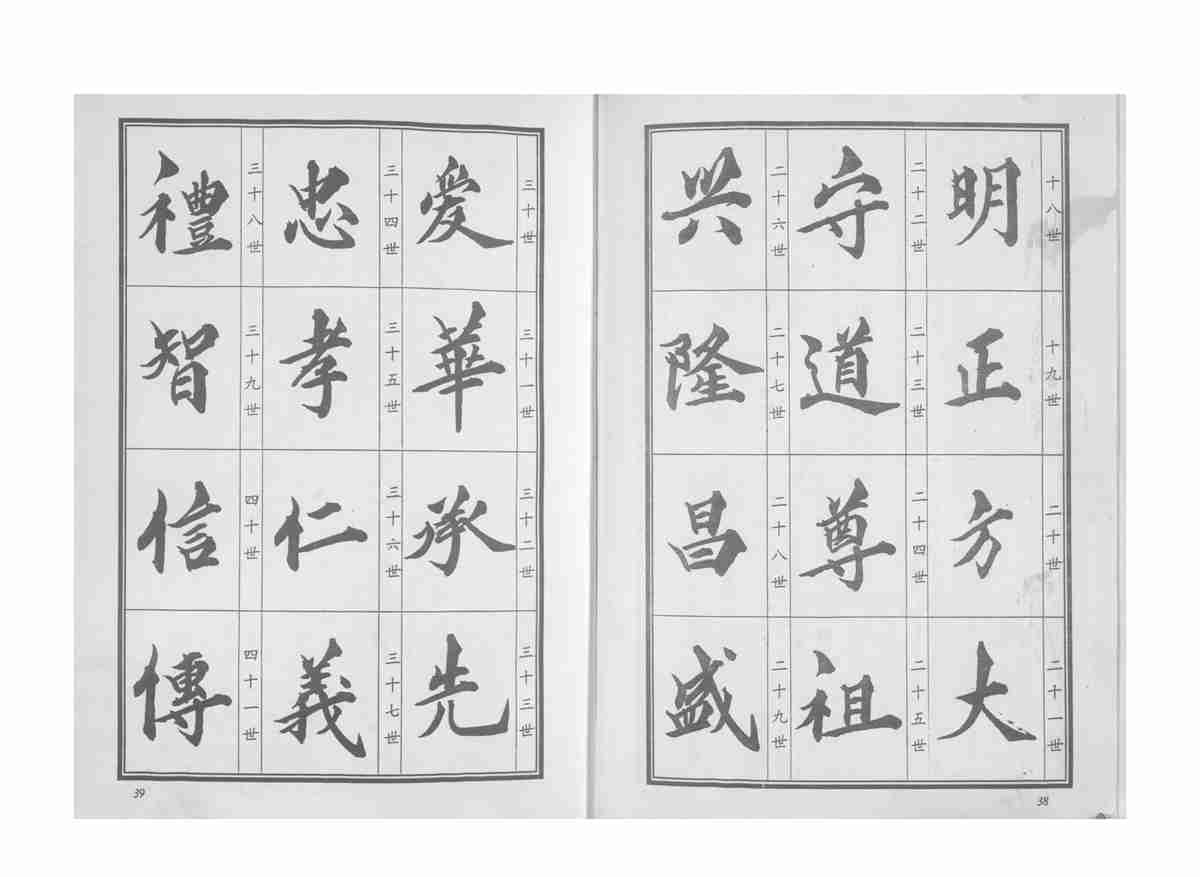 十八世
明
十九世
正
二十世
方
二十一世
大
二十二世
守
二十三世
道
二十四世
尊
二十五世
祖
二十六世
兴
二十七世
隆
二十八世
昌
二十九世
盛
38
三十世
爱
三十一世
華
三十二世
承
三十三世
先
三十四世
忠
三十五世
孝
三十六世
仁
三十七世
義
三十八世
禮
三十九世
智
四十世
信
四十一世
傳
39